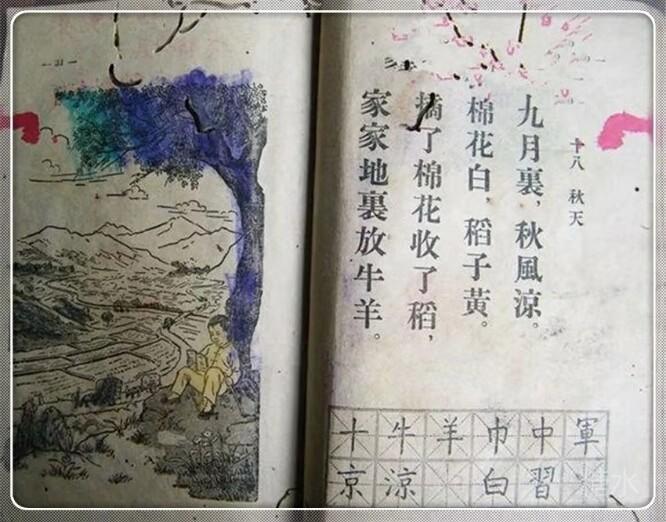 十八 秋天
九月裏，秋風涼。
棉花白，稻子黃。
摘了棉花收了稻，
家家地裏放牛羊。
十牛羊巾中軍
京涼白習